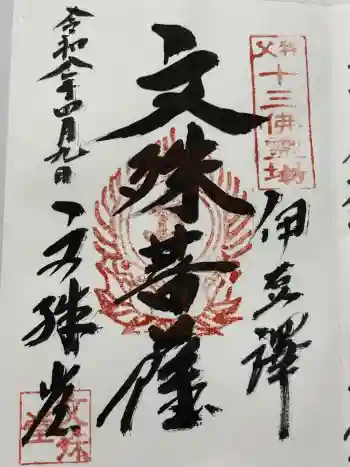 秩父
十三佛霊場
伊豆澤
文殊菩薩
令和八年四月九日
文殊堂
文殊堂